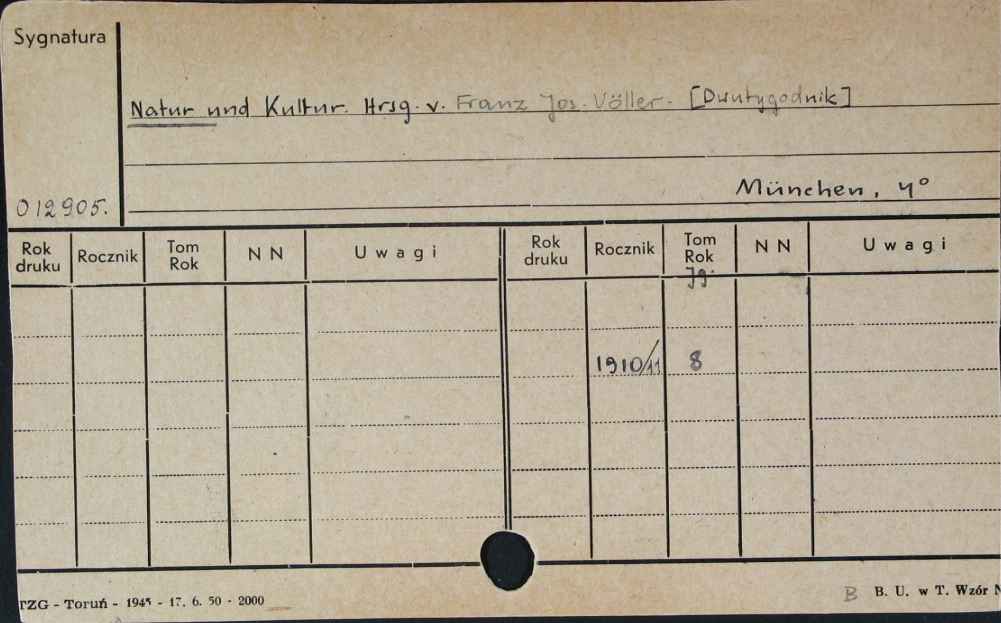 Sygnatura
Natur und Kultur. Hrsg. v. Franz Jos. Völler. [Dwutygodnik]
München, 4°
012905.
Rok druku Rocznik Tom Rok N N Uwagi Rok druku Rocznik Tom Rok N N Uwagi
Jg.
1910/11 8
TZG - Toruń - 1945 - 17. 6. 50 - 2000
B B. U. w T. Wzór N